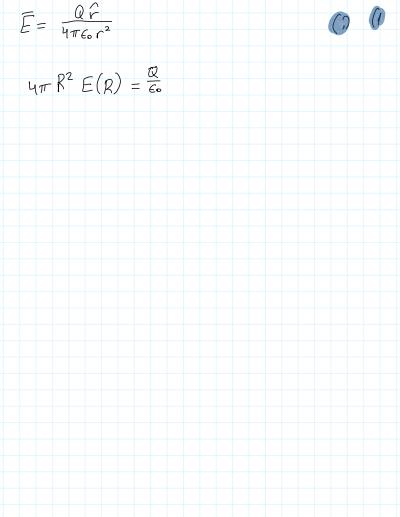 Ē = Q r̂ / 4πϵ₀r²
4π R² E(R) = Q / ϵ₀